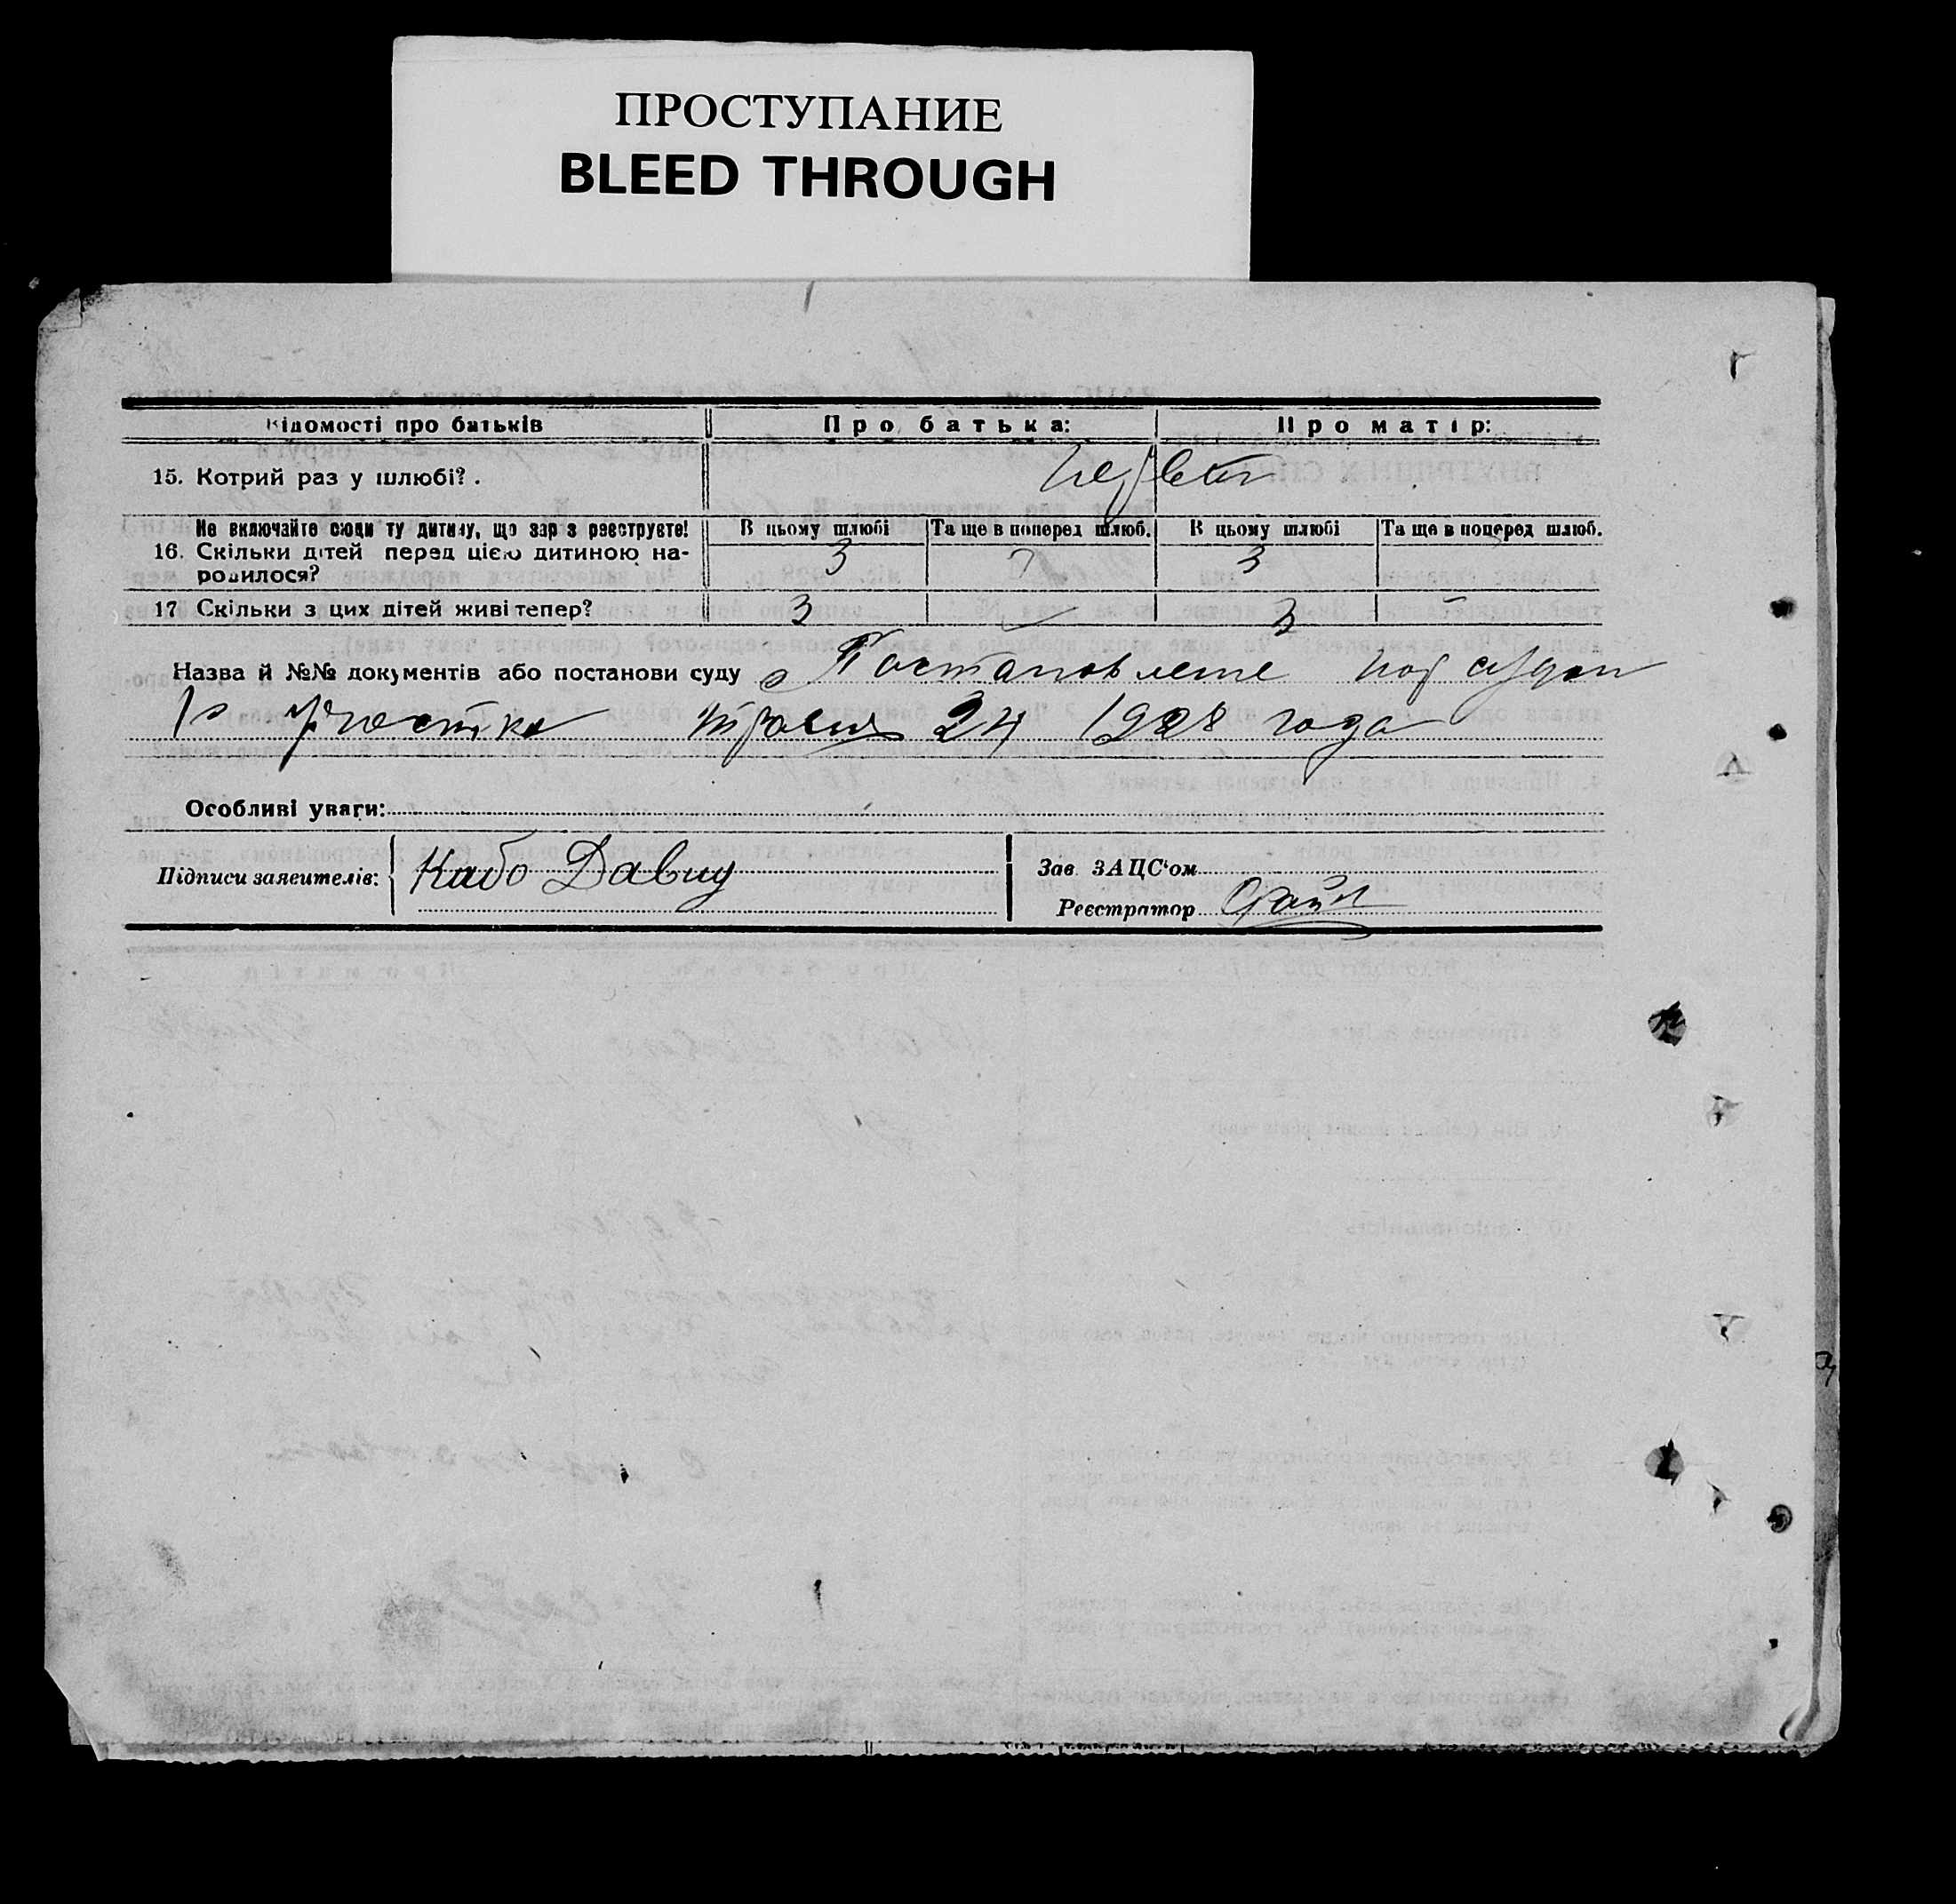 ПРОСТУПАНИЕ
BLEED THROUGH
Відомості про батьків Про батька: Про матір:
15. Котрий раз у шлюбі?. первый
Не включайте сюди ту дитину, що зараз реєструєте! В цьому шлюбі Та ще в поперед шлюб. В цьому шлюбі Та ще в поперед шлюб.
16. Скільки дітей перед цією дитиною на- 3 3
родилося?
17 Скільки з цих дітей живі тепер? 3 — 3 —
Назва й №№ документів або постанови суду Постановление нар судом
1го участка 24 1928 года
Особливі уваги:
Підписи заявителів: Кабо Давид
Зав. ЗАЦС'ом
Реєстратор